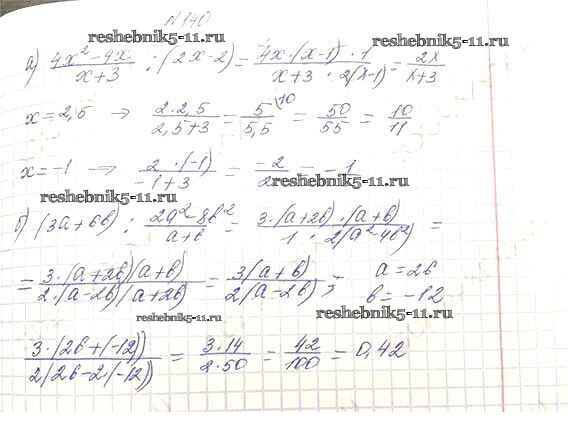 N140
reshebnik5-11.ru reshebnik5-11.ru
а) (4x² - 4x)/(x+3) : (2x-2) = (4x·(x-1)·1)/(x+3 · 2(x-1)) = 2x/(x+3)
x = 2,5 → (2·2,5)/(2,5+3) = 5/5,5 \10 = 50/55 = 10/11
x = -1 → (2·(-1))/(-1+3) = -2/2 = -1
reshebnik5-11.ru reshebnik5-11.ru
б) (3a+6b) : (2a²-8b²)/(a+b) = (3·(a+2b)·(a+b))/(1·2(a²-4b²)) =
= (3·(a+2b)(a+b))/(2·(a-2b)(a+2b)) = (3(a+b))/(2(a-2b)); a = 26
b = -12
reshebnik5-11.ru reshebnik5-11.ru
(3·(26+(-12)))/(2(26-2·(-12))) = (3·14)/(2·50) = 42/100 = 0,42